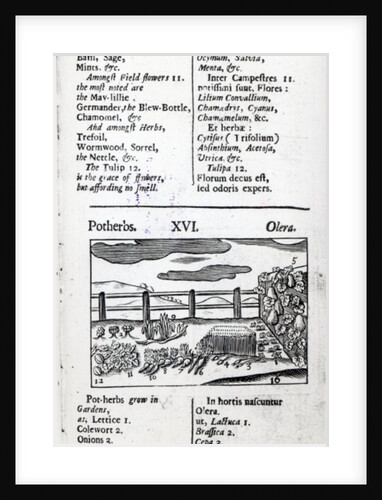 Balm, Sage,
Mints, &c.
Amongst Field flowers 11.
the most noted are
the May-lillie,
Germander, the Blew-Bottle,
Chamomel, &c
And amongst Herbs,
Trefoil,
Wormwood, Sorrel,
the Nettle, &c.
The Tulip 12.
is the grace of flowers,
but affording no smell.
Ocymum, Salvia,
Menta, &c.
Inter Campestres 11.
notissimi sunt, Flores:
Lilium Convallium,
Chamædrys, Cyanus,
Chamæmelum, &c.
Et herbæ:
Cytisus (Trifolium)
Absinthium, Acetosa,
Urtica, &c.
Tulipa 12.
Florum decus est,
sed odoris expers.
Potherbs. XVI. Olera.
5
12 11 10 9 8 7 6 4 3 2 1
16
Pot-herbs grow in
Gardens,
as, Lettice 1.
Colewort 2.
Onions 2.
In hortis nascuntur
Olera.
ut, Lactuca 1.
Brassica 2.
Cepa 2.